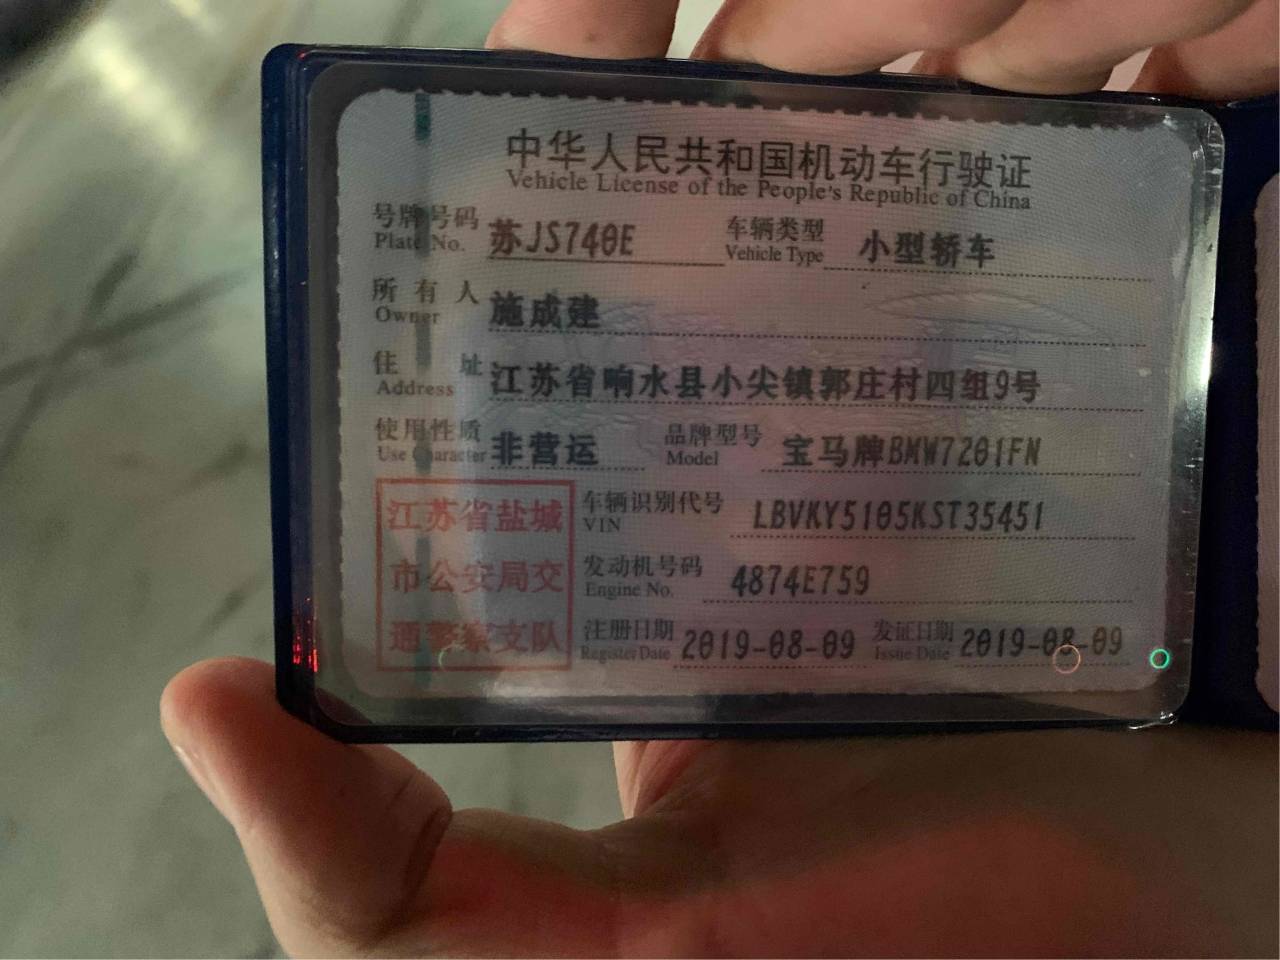 中华人民共和国机动车行驶证
Vehicle License of the People's Republic of China
号牌号码 苏JS740E 车辆类型 小型轿车
Plate No. Vehicle Type
所有人 施成建
Owner
住址 江苏省响水县小尖镇郭庄村四组9号
Address
使用性质 非营运 品牌型号 宝马牌BMW7201FN
Use Character Model
江苏省盐城
市公安局交
通警察支队
车辆识别代号 LBVKY5105KST35451
VIN
发动机号码 4874E759
Engine No.
注册日期 2019-08-09 发证日期 2019-08-09
Register Date Issue Date